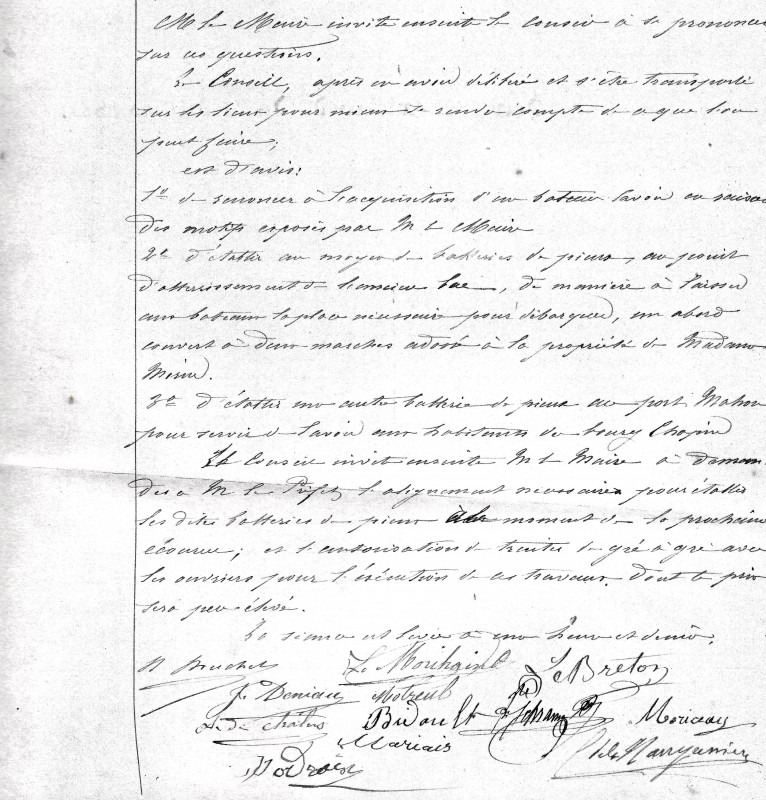 M le Maire invite ensuite le conseil à se prononcer
sur ces questions.
Le Conseil, après en avoir délibéré et s'être transporté
sur les lieux pour mieux se rendre compte de ce que l'on
peut faire;
est d'avis:
1º de renoncer à l'acquisition d'un bateau lavoir en raison
des motifs exposés par M le Maire
2º d'établir au moyen de batteries de pieux, au point
d'atterrissement de l'ancien bac, de manière à laisser
aux bateaux la place nécessaire pour débarquer, un abord
couvert à deux marches adossé à la propriété de Madame
3º d'établir une autre batterie de pieux au port Mahon
pour servir de lavoir aux habitants du bourg Chopin
Le Conseil invite ensuite M le Maire à deman-
der à M le Préfet l'alignement nécessaire pour établir
les dites batteries de pieux moment de la prochaine
écourue; et l'autorisation de traiter de gré à gré avec
les ouvriers pour l'exécution de ces travaux. dont le prix
sera peu élevé.
La séance est levée à une heure et demie.
Le Breton
J. Deniau Motreul
Bidault Moriceau
Marias